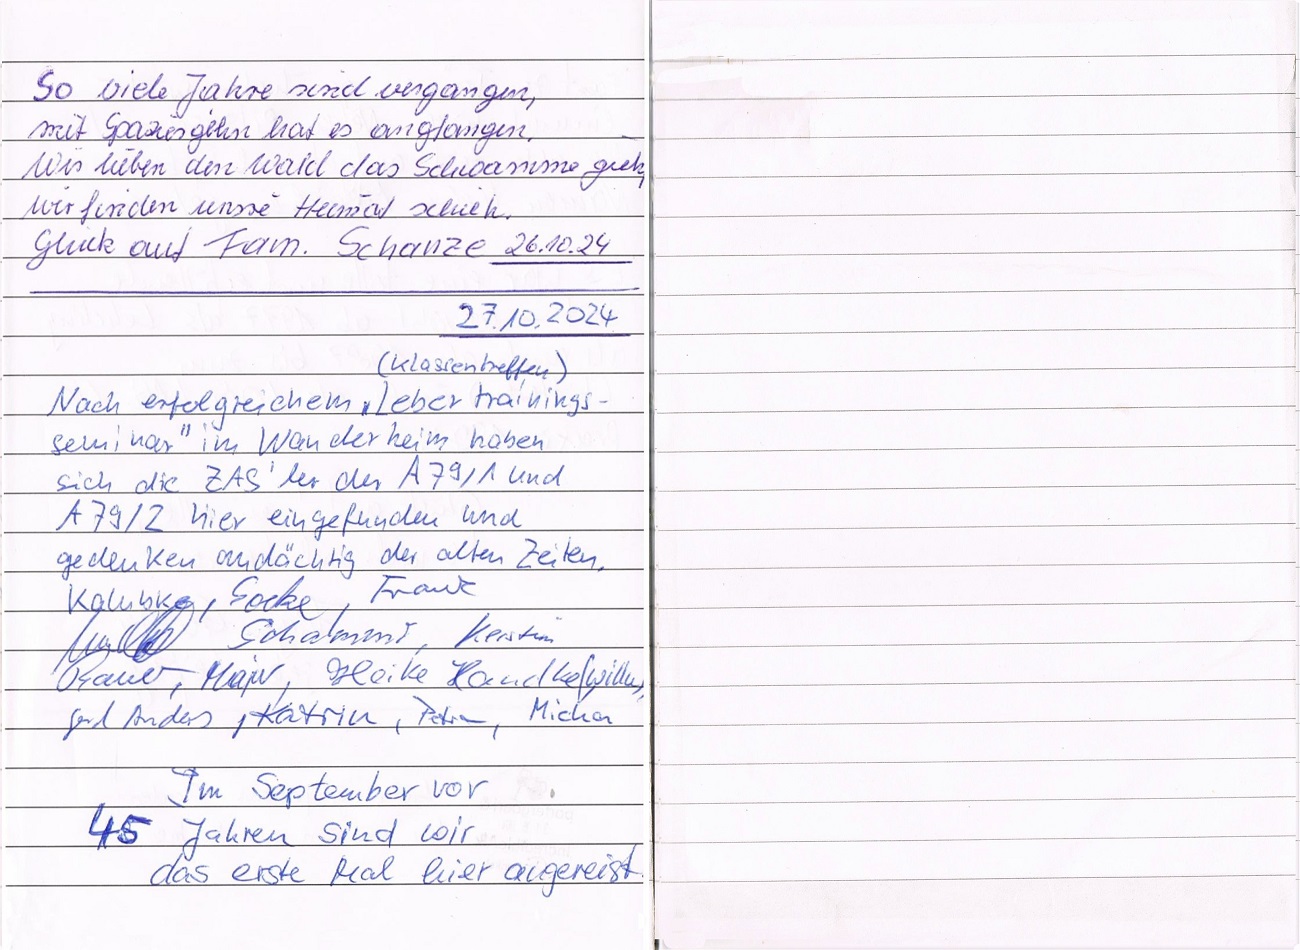 So viele Jahre sind vergangen,
mit Spaziergehn hat es angfangen.
Wir lieben den Wald das Schwamme glück,
wir finden unsre Heimat schick.
Glück auf Fam. Schanze 26.10.24
27.10.2024
(Klassentreffen)
Nach erfolgreichem „Lebertrainings-
seminar" im Wanderheim haben
sich die ZAS'ler der A79/1 und
A79/2 hier eingefunden und
gedenken andächtig der alten Zeiten.
Kalubke, Socke, Frank
Schammi, Kerstin
Major, Heike Handke
Gerd Anders, Katrin, Petra, Micha
Im September vor
45 Jahren sind wir
das erste Mal hier angereist.